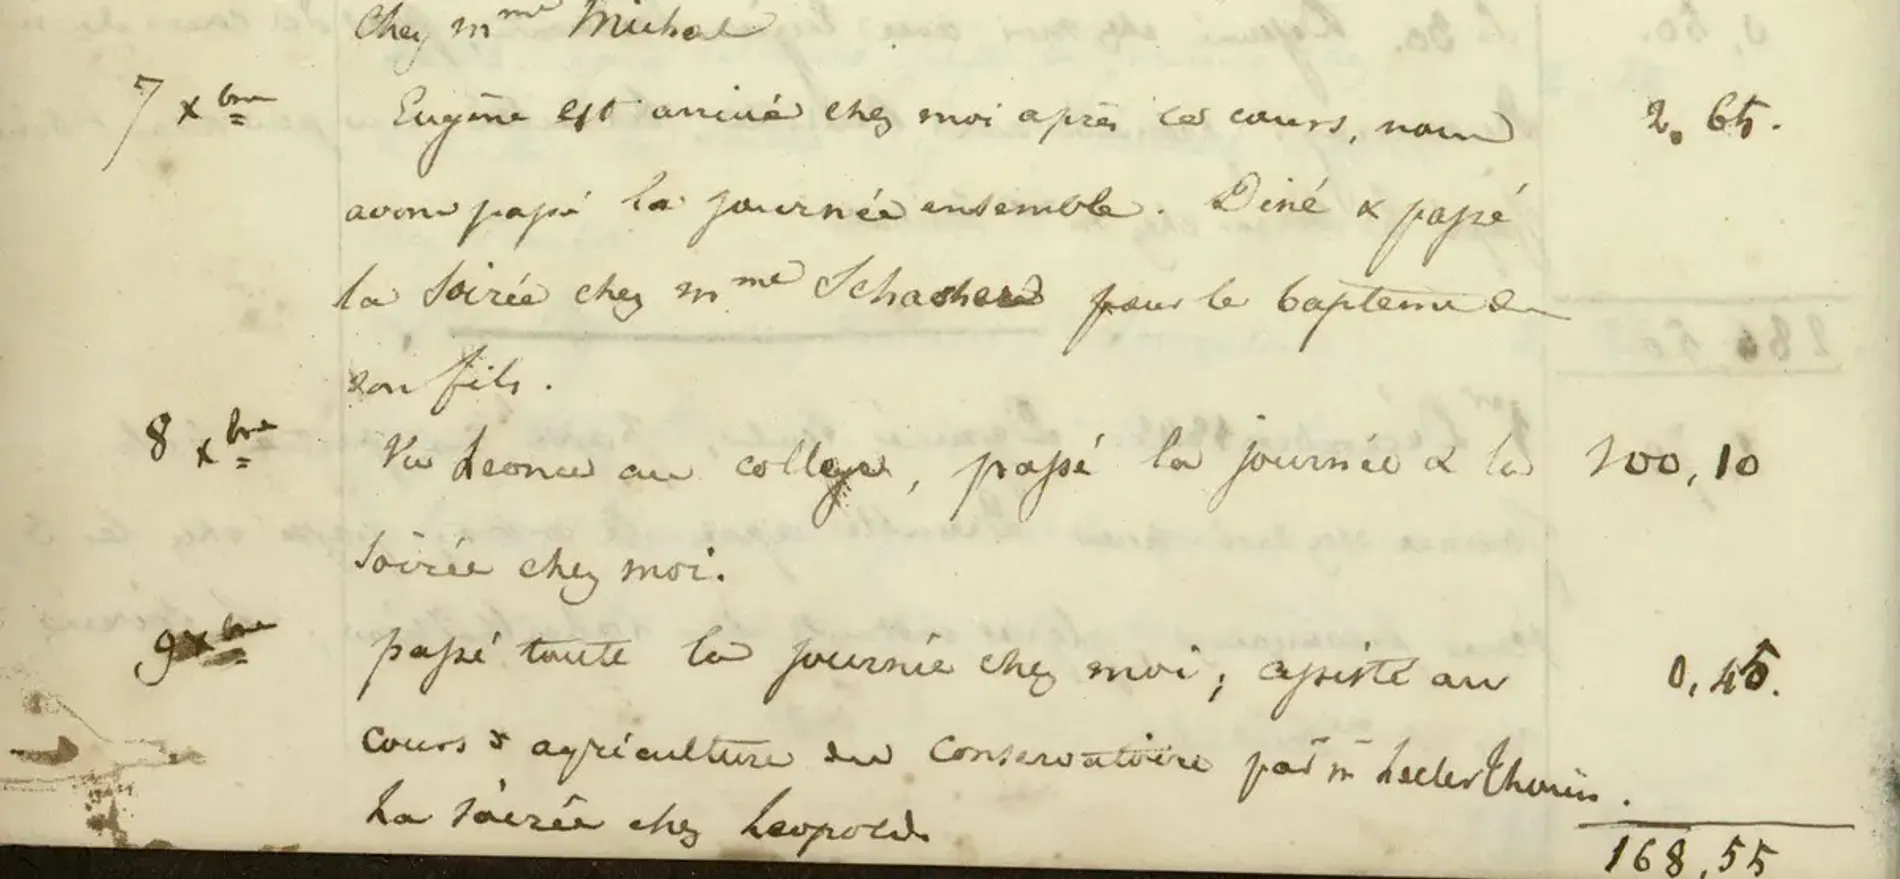 chez mme Michel
7 xbre Eugène est arrivé chez moi après ces cours, nous 2.65.
avons passé la journée ensemble. Diné & passé
la soirée chez mme pour le bapteme de
son fils.
8 xbre Vu Leonce au college, passé la journée & la 100,10
soirée chez moi.
9 xbre passé toute la journée chez moi; assisté au 0,45.
cours d'agriculture du Conservatoire par m Leclerc Thouin.
La soirée chez Leopold.
168,55